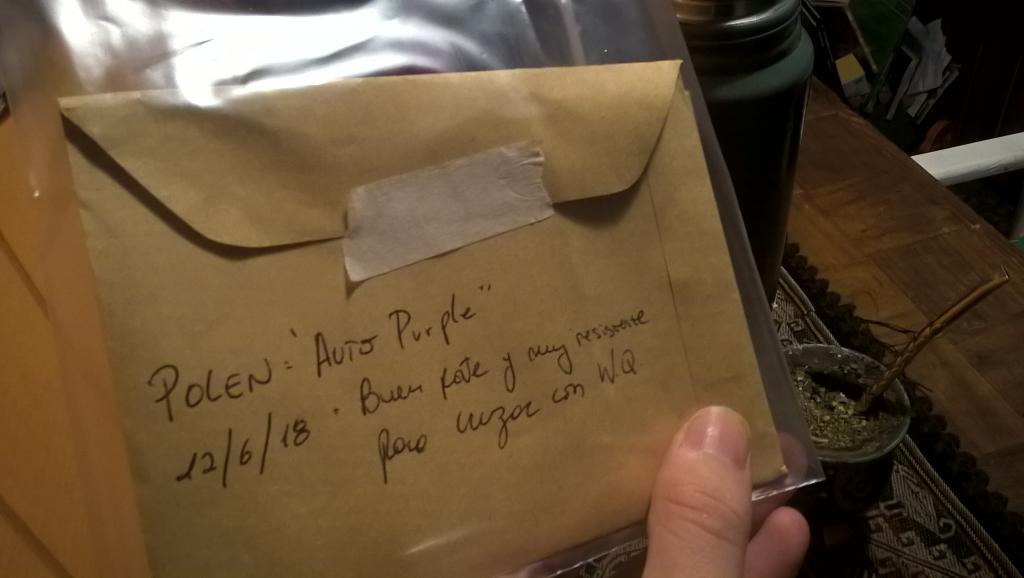 POLEN: "Auto Purple"
12/6/18 . Buen porte y muy resistente
para cruzar con W.Q